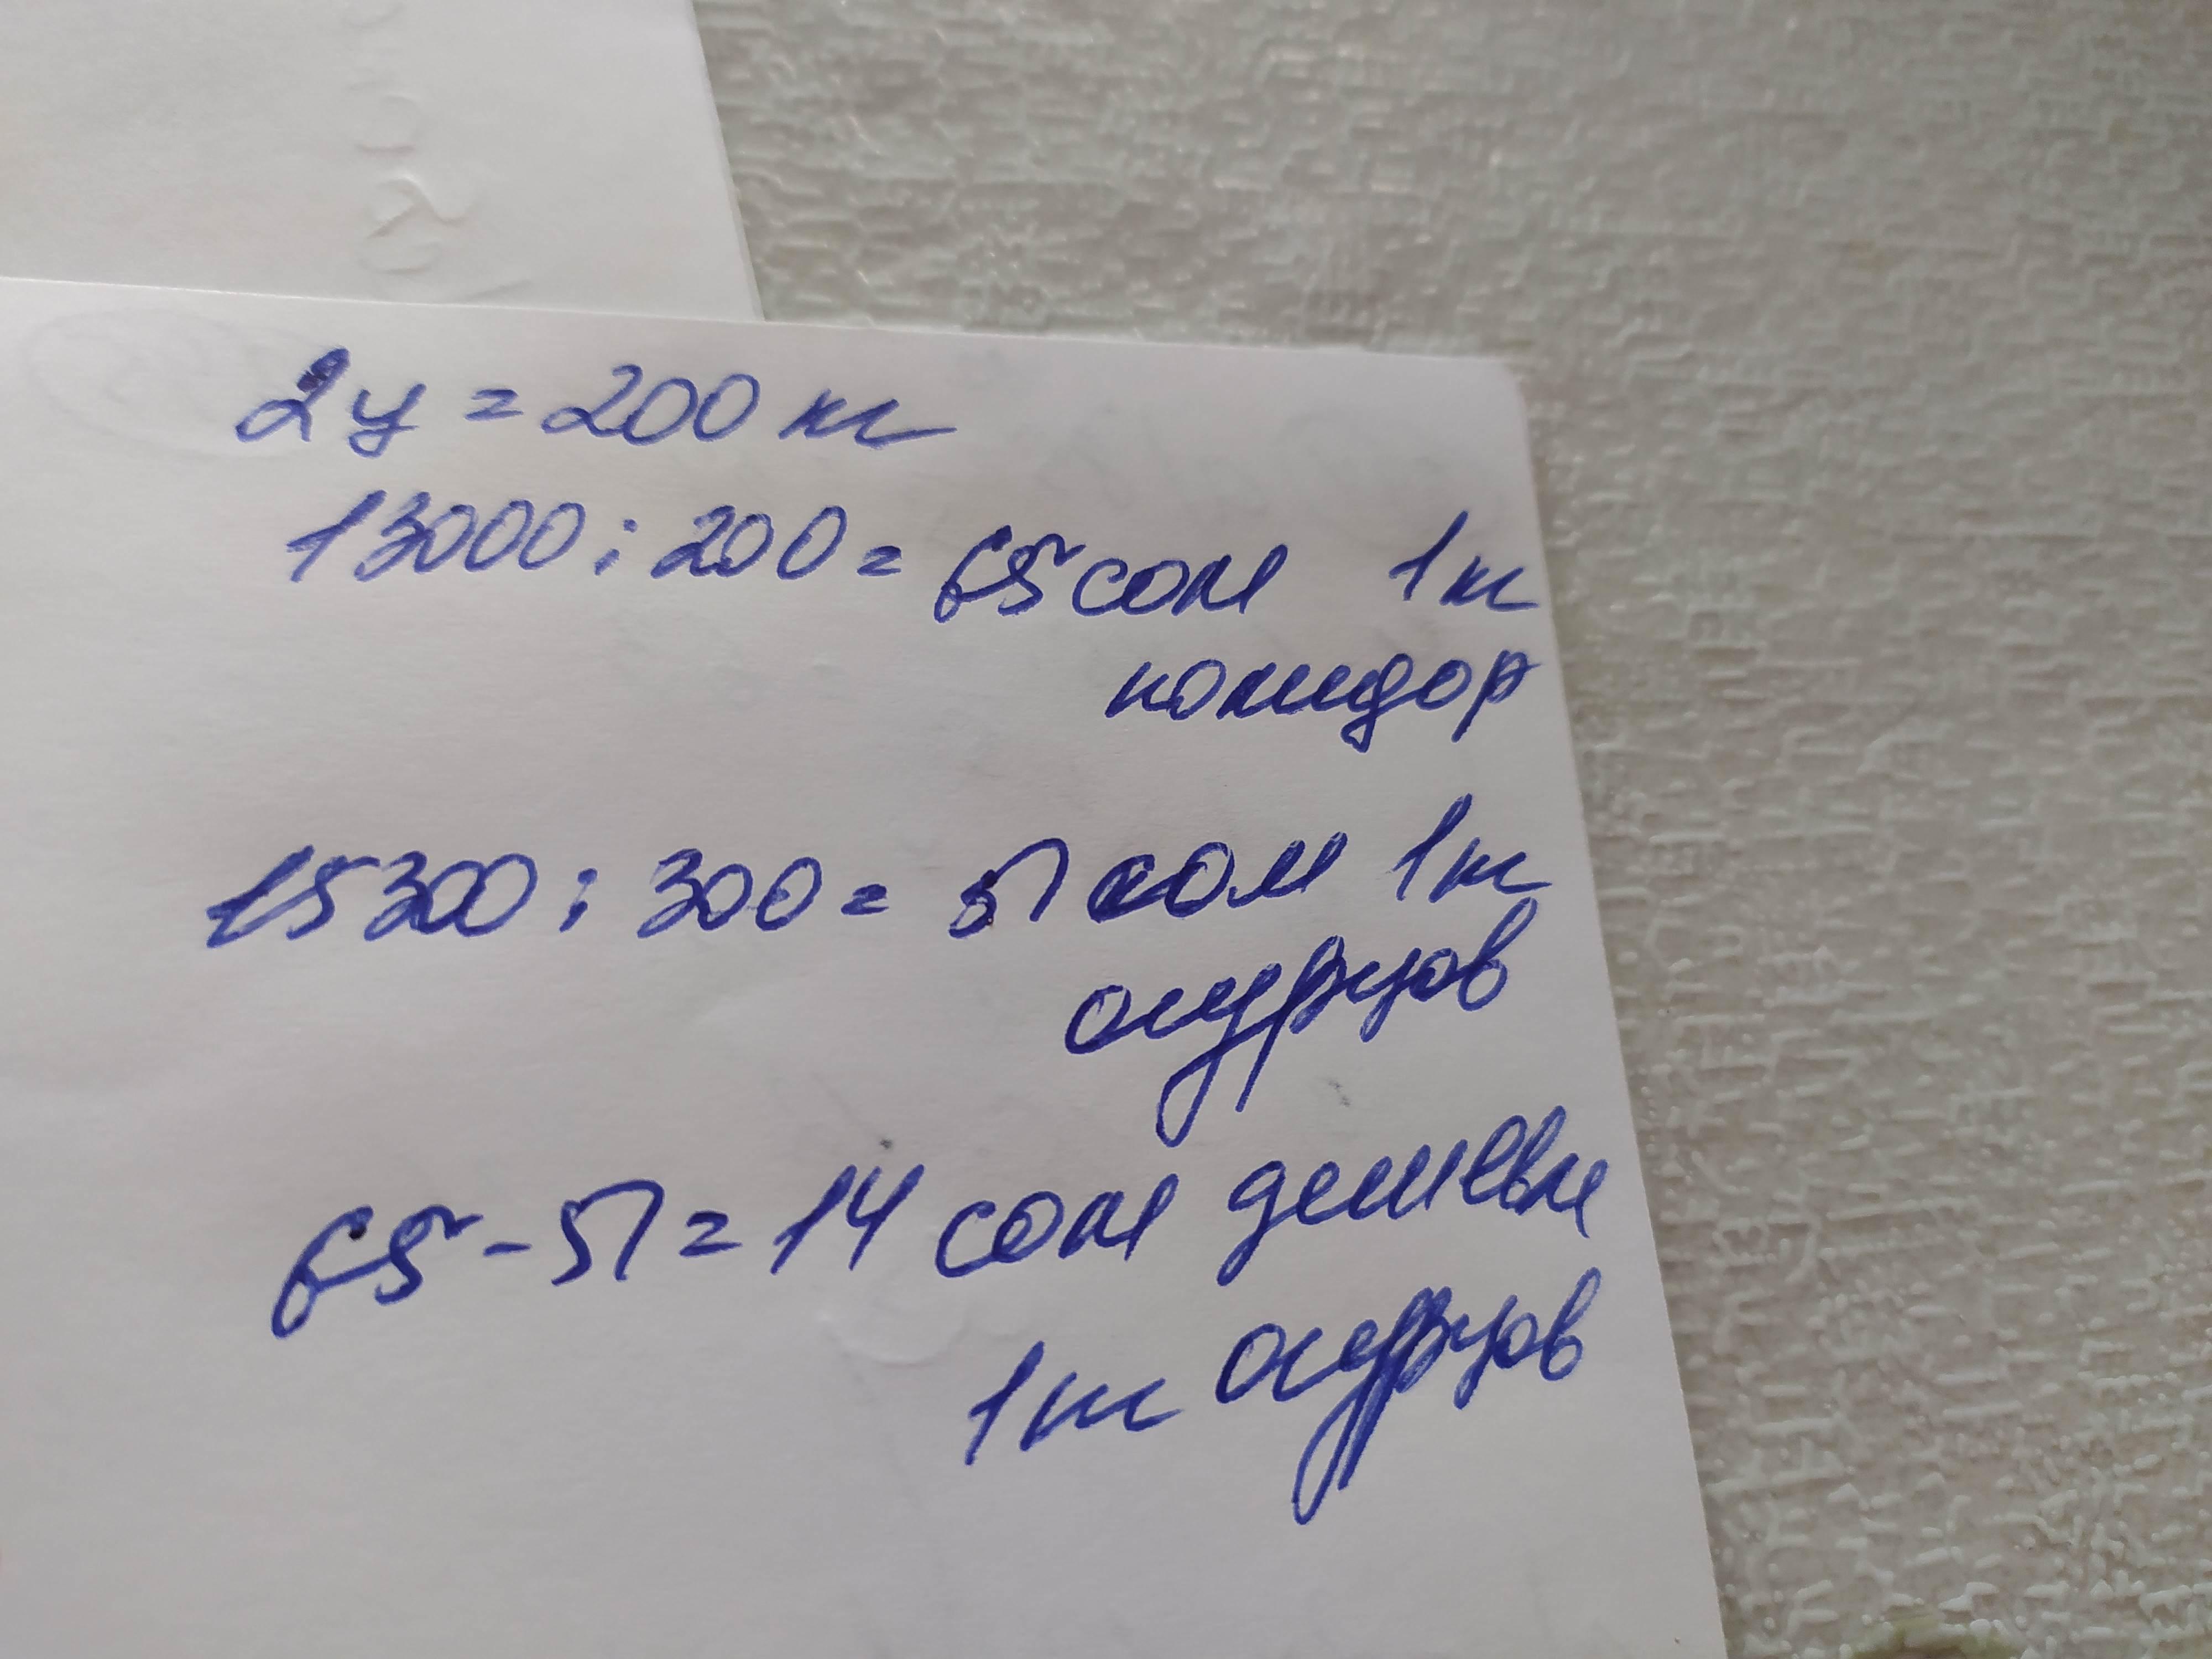 2ц = 200 кг
13000 : 200 = 65 сом 1 кг
помидор
15300 : 300 = 51 сом 1 кг
огурцов
65 - 51 = 14 сом дешевле
1 кг огурцов